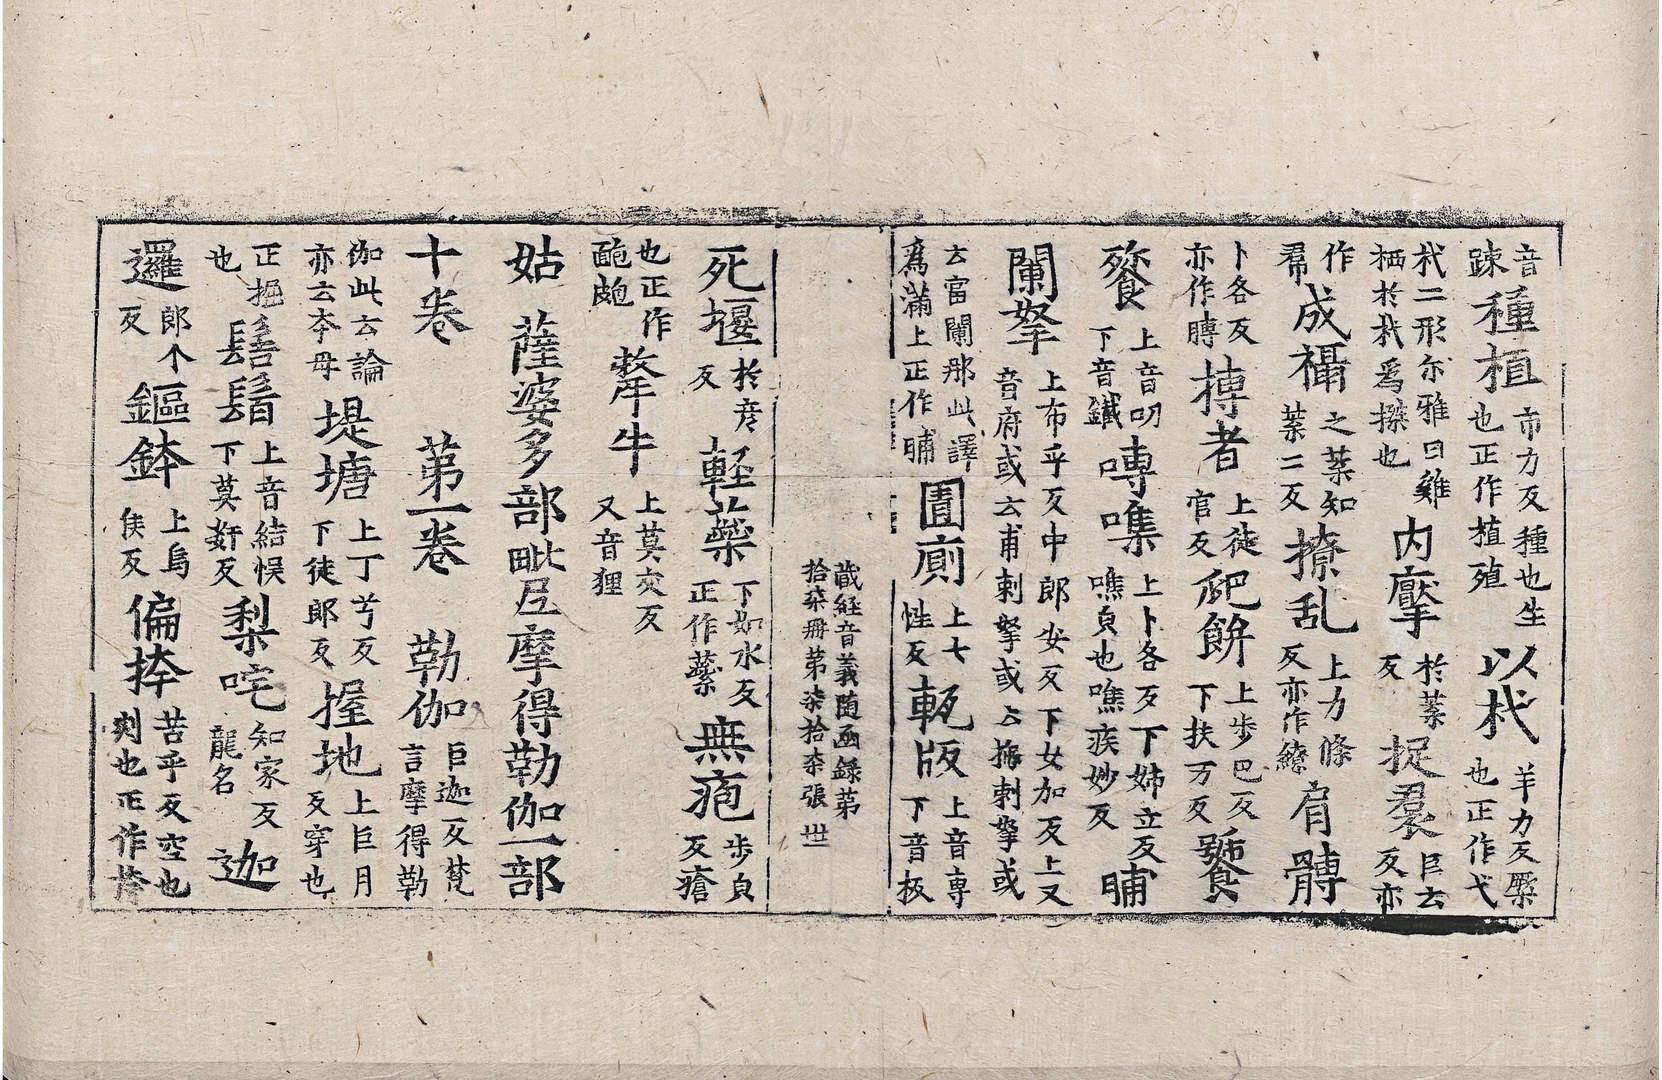 音疎種植市力反種也生也正作植殖以杙羊力反橜也正作弋
杙二形尓雅曰雞栖於杙爲榤也内壓於葉反捉羣巨云反亦
作帬成襵之葉知葉二反撩乱上力條反亦作繚肩髆
卜各反亦作膊摶者上徒官反爬餅上步巴反下扶万反饕
餮上音叨下音鐵嚩噍上卜各反下姊立反噍皃也噍疾妙反晡
闌拏上布乎反中郎安反下女加反上又音府或云甫剌拏或云攞剌拏或
云富闌那此譯爲滿上正作晡圊廁上七性反甎版上音専下音板
藏經音義隨函録第
拾柒冊第柒拾柒張 丗
死堰於彦反輕蘂下如水反正作蘂無疱步皃反瘡
也正作皰犛牛上莫交反又音狸
姑 薩婆多部毗尼摩得勒伽一部
十卷 第一卷 勒伽巨迦反梵言摩得勒
伽此云論亦云本母堤塘上丁兮反下徒郎反掘地上巨月反穿也
正掘也髻鬌上音結悮下莫奸反梨咤知家反龍名迦
邏郎个反鏂鉢上烏侯反偏捽苦乎反空也刻也正作挎